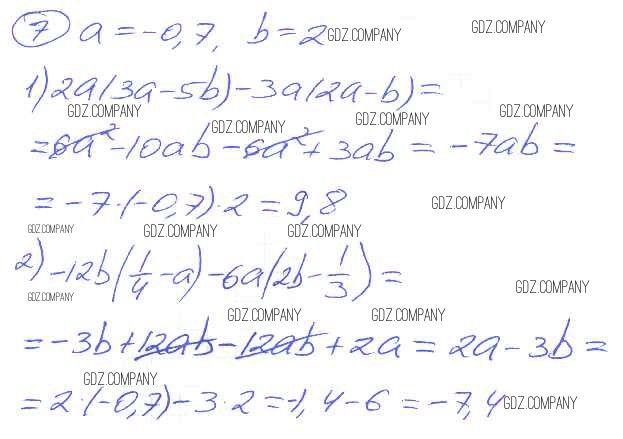 7 a = -0,7, b = 2 GDZ.COMPANY GDZ.COMPANY
1) 2a(3a-5b)-3a(2a-b)=
GDZ.COMPANY GDZ.COMPANY GDZ.COMPANY GDZ.COMPANY
=6a²-10ab-6a²+3ab = -7ab =
= -7·(-0,7)·2 = 9,8 GDZ.COMPANY
GDZ.COMPANY GDZ.COMPANY GDZ.COMPANY
2) -12b(1/4-a)-6a(2b-1/3)=
GDZ.COMPANY GDZ.COMPANY
GDZ.COMPANY GDZ.COMPANY
=-3b+12ab-12ab+2a = 2a-3b =
GDZ.COMPANY
=2·(-0,7)-3·2=-1,4-6=-7,4 GDZ.COMPANY